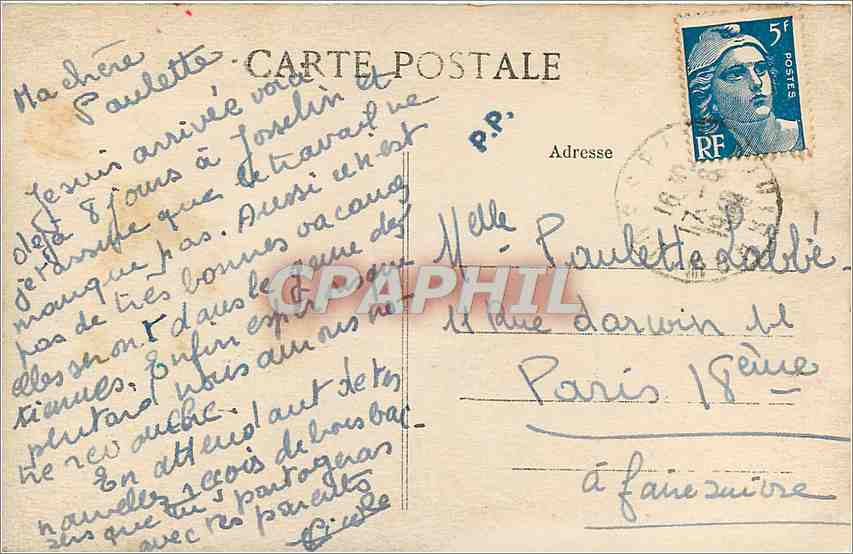 CARTE POSTALE
Ma chère
Paulette.
Je suis arrivée voià
déjà 8 jours à Josselin et
je t'assure que le travail ne
manque pas. Aussi ce n'est
pas de très bonnes vacances
elles seront dans le genre des
tiennes. Enfin espérons que
plus tard nous aurons no-
tre revanche.
En attendant de tes
nouvelles reçois de bons bai-
sers que tu partageras
avec tes parents
Nicole
P.P.
5F
POSTES
RF
Adresse
Melle Paulette Labbé.
11 Rue Darwin 11
Paris 18ème
à faire suivre
CPAPHIL